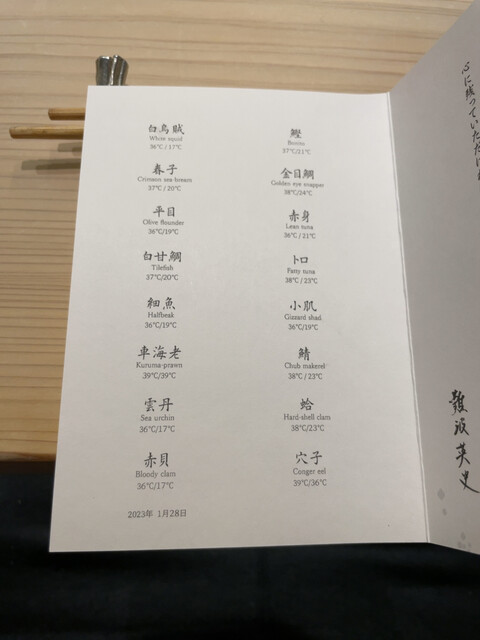 白烏賊
White squid
36℃/17℃
春子
Crimson sea bream
37℃/20℃
平目
Olive flounder
36℃/19℃
白甘鯛
Tilefish
37℃/20℃
細魚
Halfbeak
36℃/19℃
車海老
Kuruma-prawn
39℃/39℃
雲丹
Sea urchin
36℃/17℃
赤貝
Bloody clam
36℃/17℃
鰹
Bonito
37℃/21℃
金目鯛
Golden eye snapper
38℃/24℃
赤身
Lean tuna
36℃/21℃
トロ
Fatty tuna
38℃/23℃
小肌
Gizzard shad
36℃/19℃
鯖
Chub makerel
38℃/23℃
蛤
Hard-shell clam
38℃/23℃
穴子
Conger eel
39℃/36℃
2023年 1月28日
心に残っていただけ
難波英史